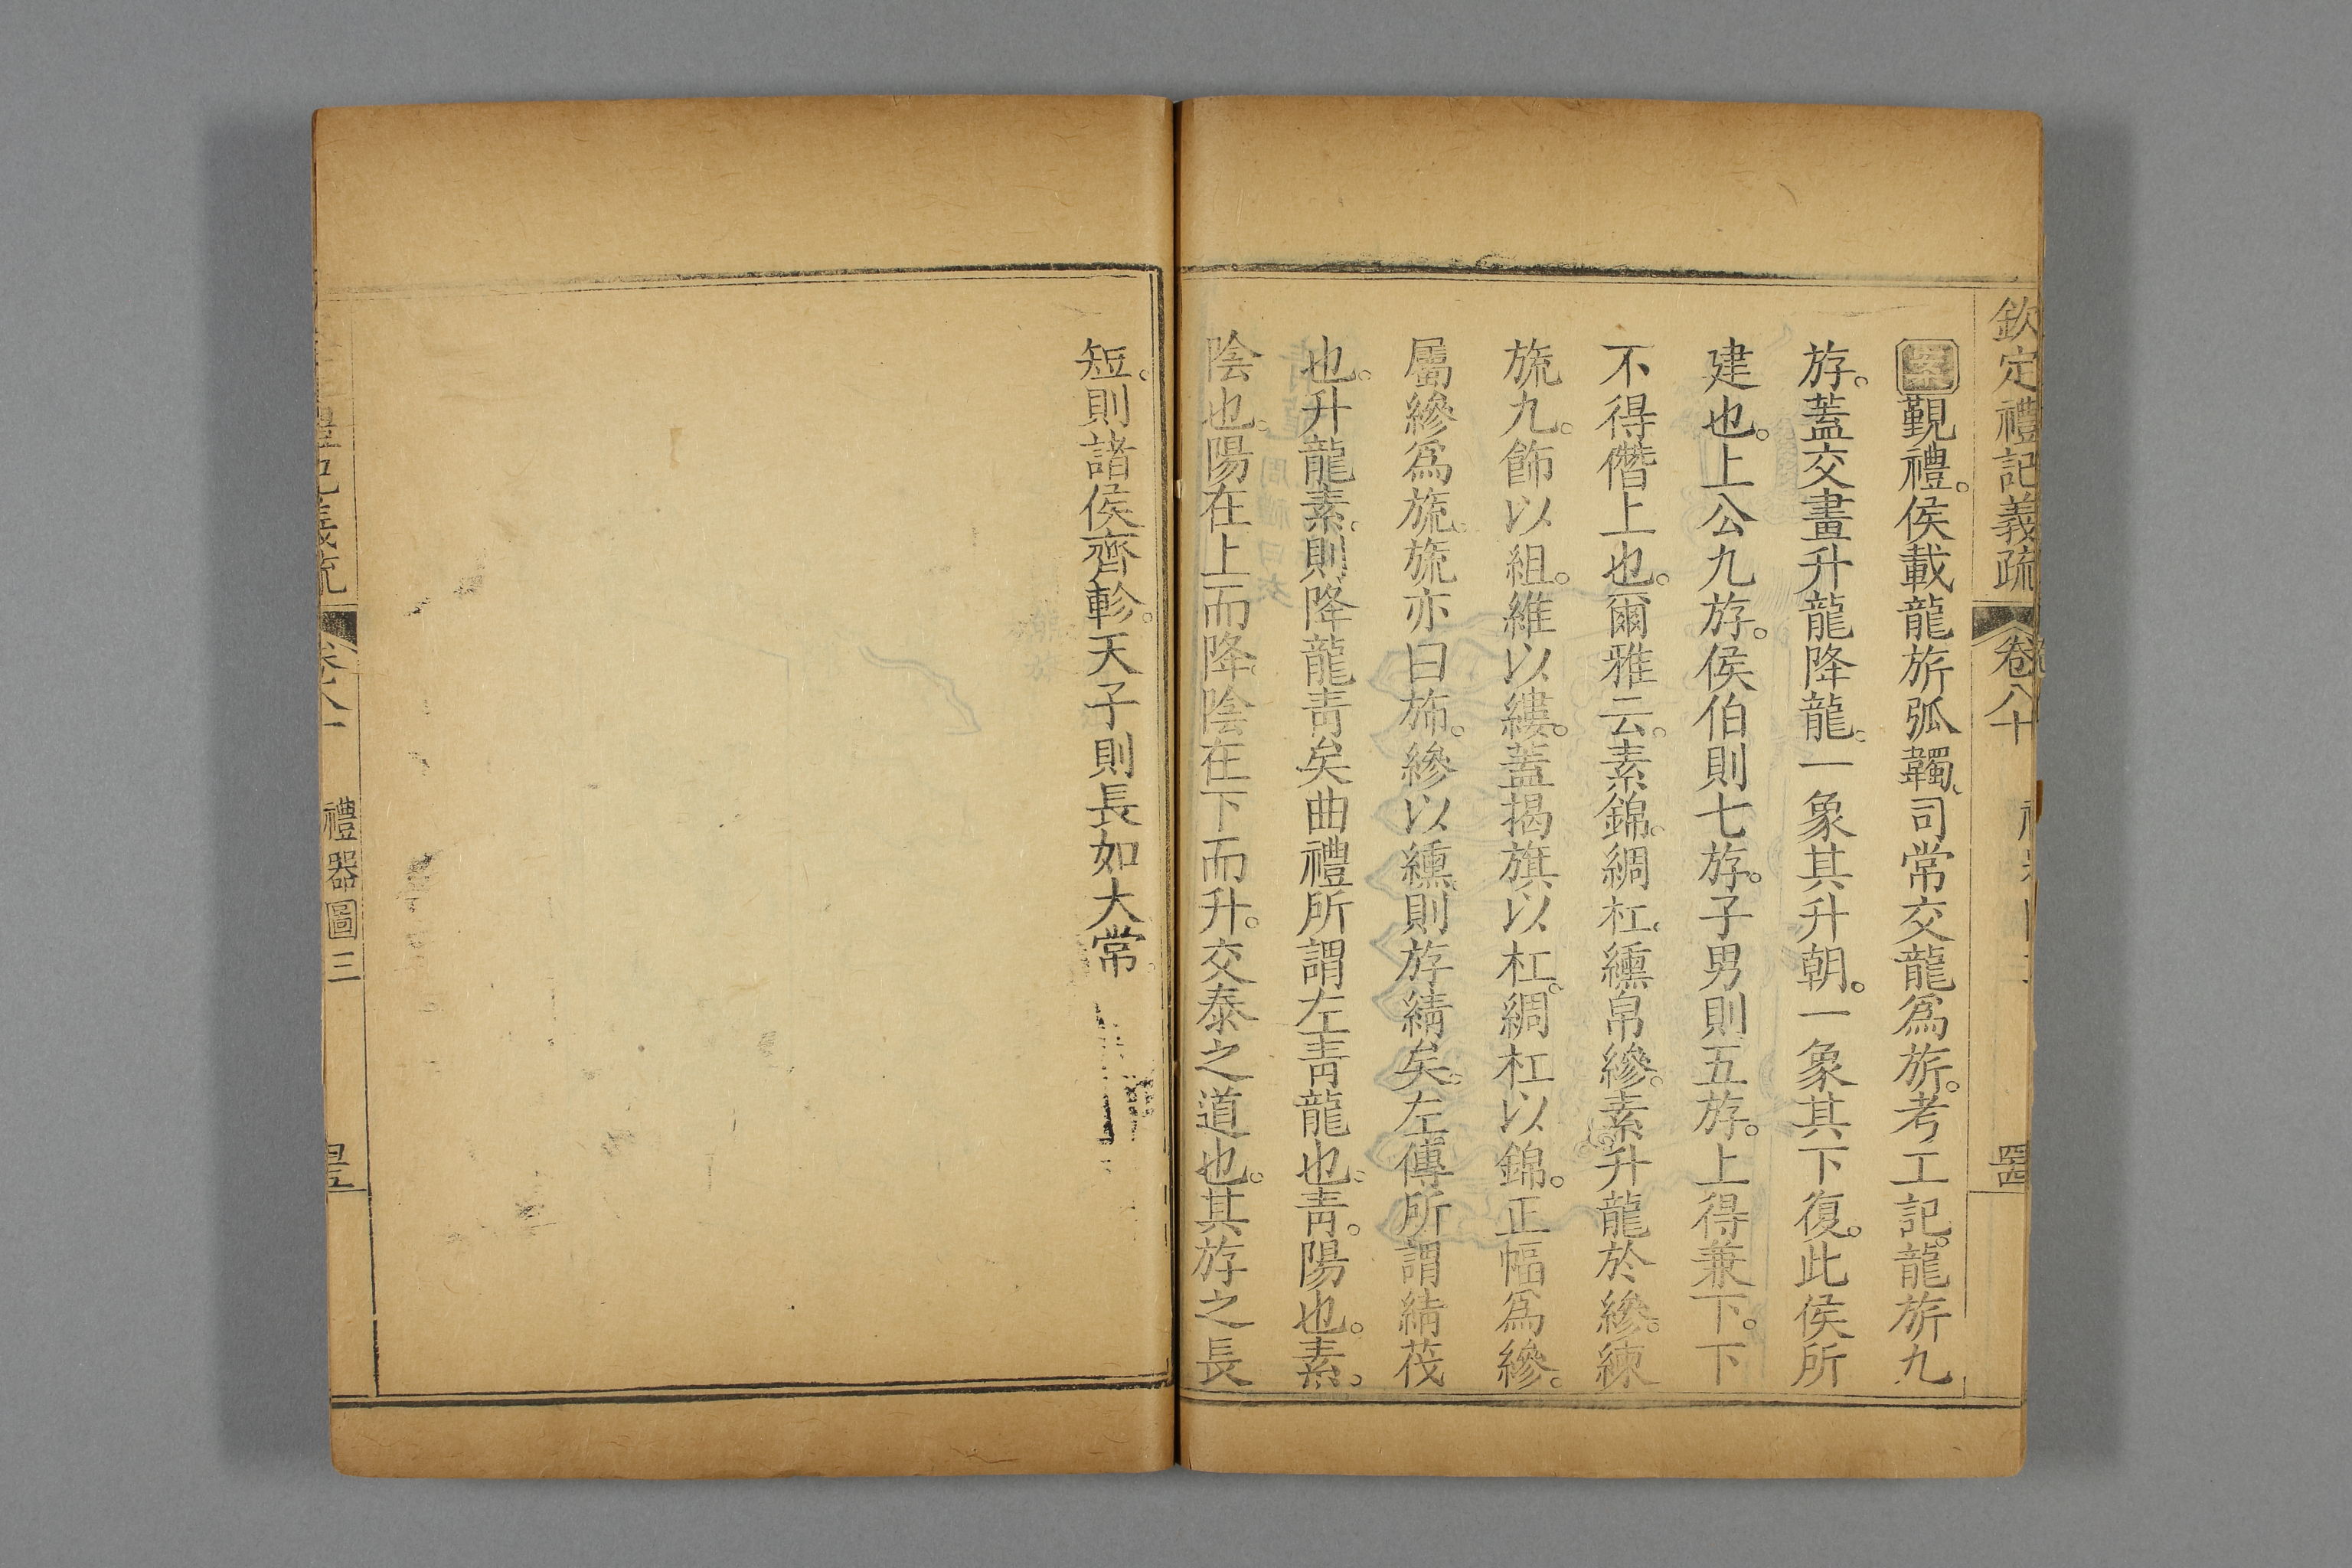 欽定禮記義疏 卷八十
案覲禮。侯載龍旂弧韣、司常交龍爲旂。考工記。龍旂九
斿。蓋交畫升龍降龍。一象其升朝。一象其下復。此侯所
建也。上公九斿。侯伯則七斿。子男則五斿。上得兼下。下
不得僭上也。爾雅云。素錦。綢杠。纁帛縿。素升龍於縿。練
旒九。飾以組。維以縷。蓋揭旗以杠。綢杠以錦。正幅爲縿。
屬縿爲旒。旒亦曰斾。縿以纁。則斿綪矣。左傳所謂綪茷
也。升龍素。則降龍青矣曲禮所謂左青龍也。青。陽也。素。
陰也。陽在上而降。陰在下而升。交泰之道也。其斿之長
短。則諸侯齊軫。天子則長如大常
禮記義疏 卷八十 禮器圖三